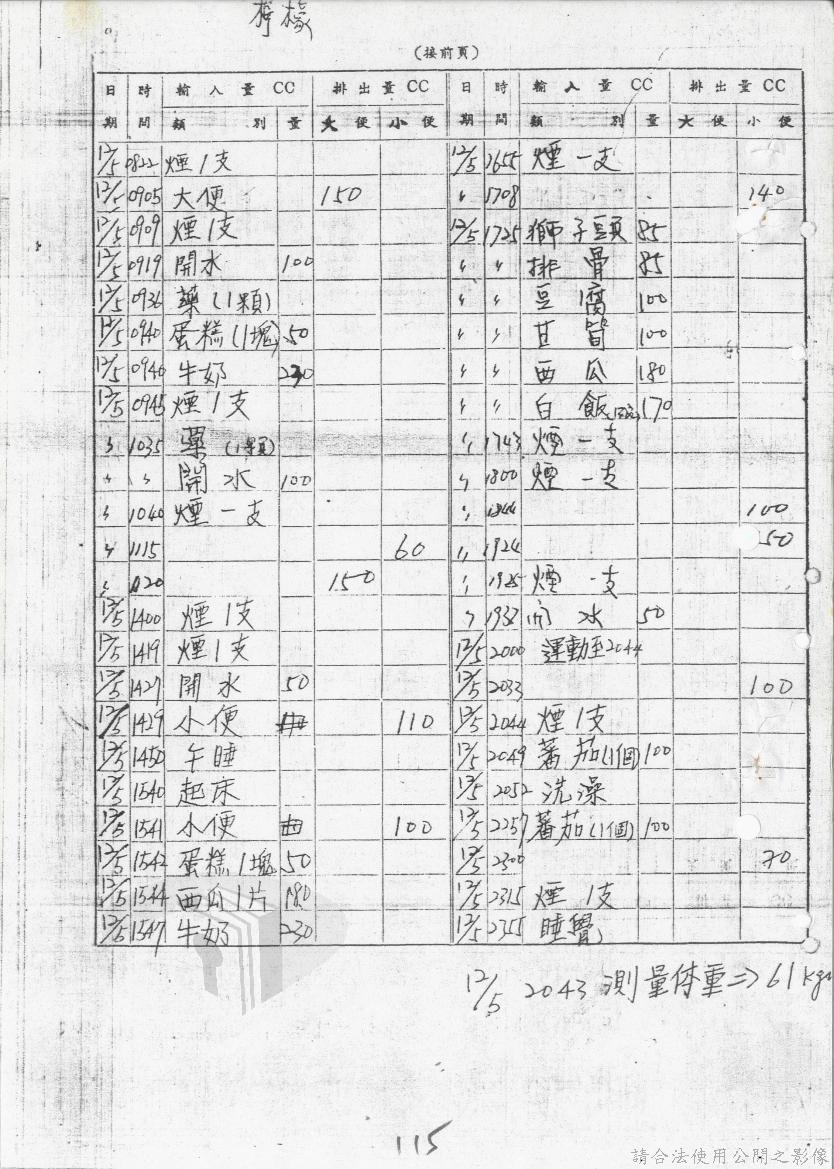 檸檬
(接前頁)
日期 時間 輸入量CC 類別 量 排出量CC 大便 小便
12/5 0822 煙1支
12/5 0905 大便 150
12/5 0909 煙1支
12/5 0919 開水 100
12/5 0936 藥(1顆)
12/5 0940 蛋糕(1塊) 50
12/5 0940 牛奶 230
12/5 0945 煙1支
〃 1035 藥(1顆)
〃 〃 開水 100
〃 1040 煙一支
〃 1115 60
〃 1120 150
12/5 1400 煙1支
12/5 1419 煙1支
12/5 1427 開水 50
12/5 1429 小便 110
12/5 1450 午睡
12/5 1540 起床
12/5 1541 小便 100
12/5 1542 蛋糕1塊 50
12/5 1544 西瓜1片 180
12/5 1547 牛奶 230
日期 時間 輸入量CC 類別 量 排出量CC 大便 小便
12/5 1655 煙一支
〃 1708 140
12/5 1725 獅子頭 85
〃 〃 排骨 85
〃 〃 豆腐 100
〃 〃 100
〃 〃 西瓜 180
〃 〃 白飯 170
〃 1743 煙一支
〃 1800 煙一支
〃 100
〃 1924 50
〃 1925 煙一支
〃 開水 50
12/5 2000 運動至2044
12/5 2033 100
12/5 2044 煙1支
12/5 2049 蕃茄(1個) 100
12/5 2052 洗澡
12/5 2257 蕃茄(1個) 100
12/5 2300 70
12/5 2315 煙1支
12/5 2355 睡覺
12/5 2043 測量体重⇒61kg
115
請合法使用公開之影像